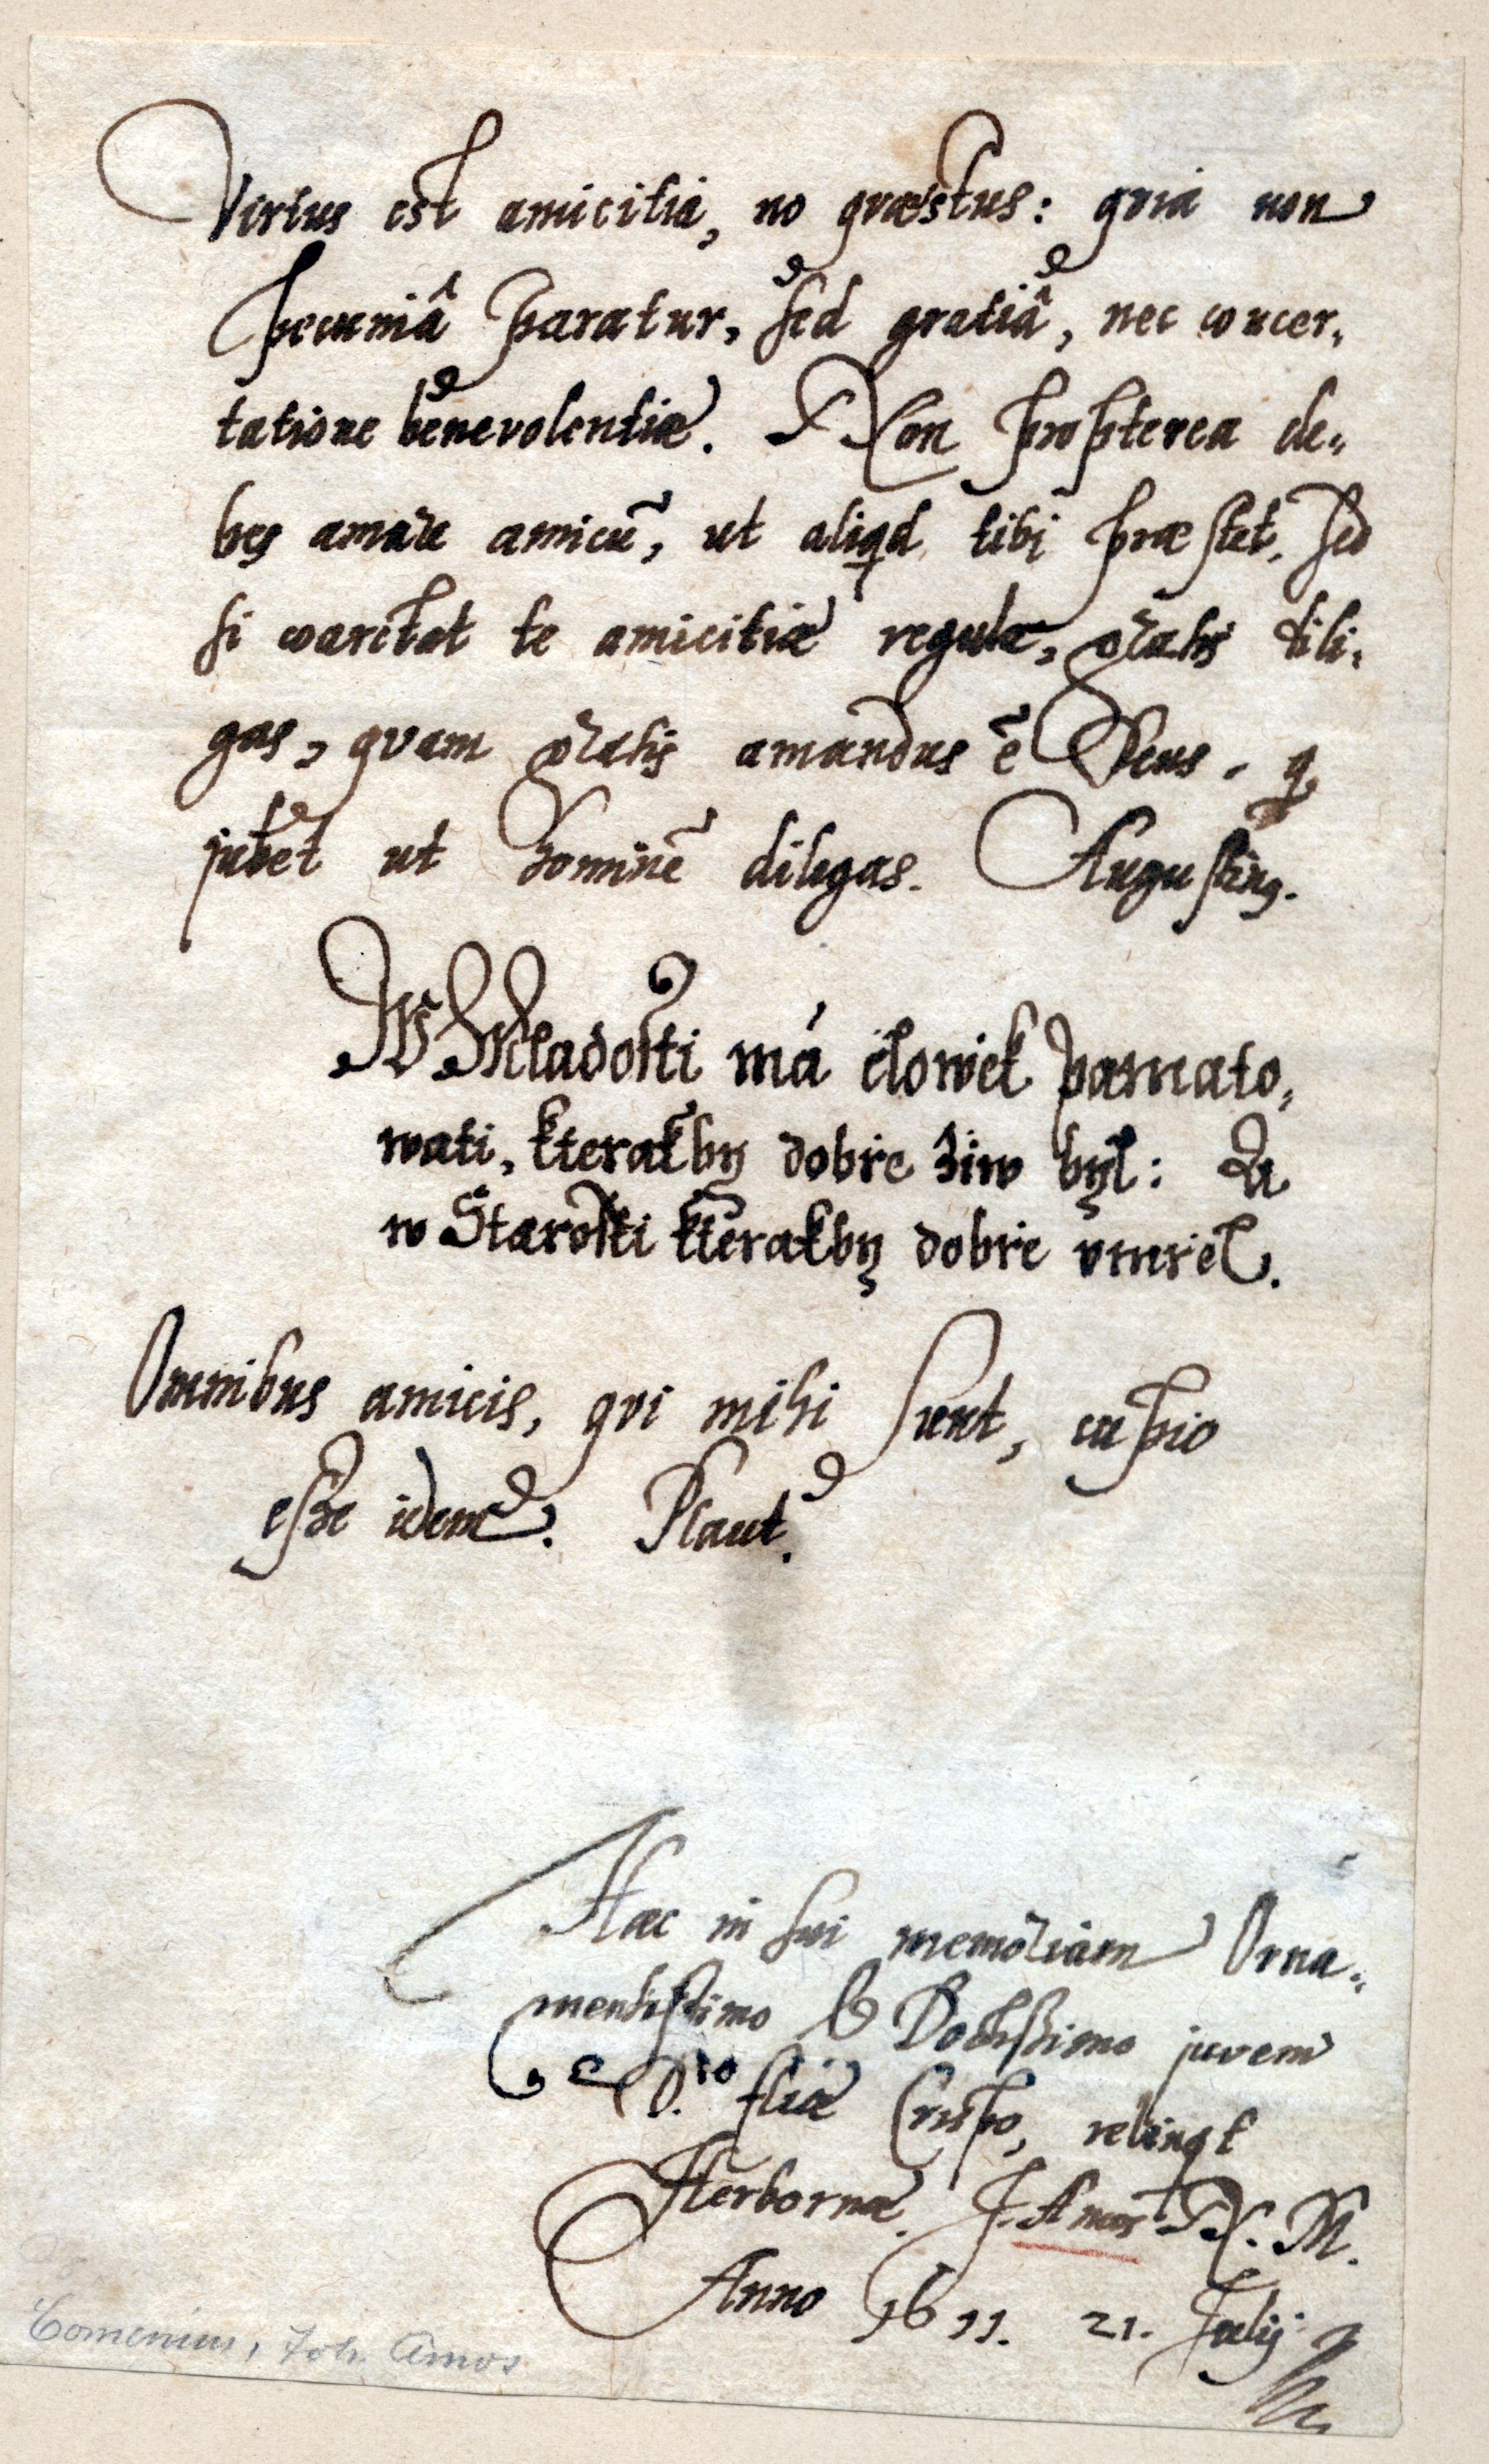 Virtus est amicitia, nō qvæstus: qvia non
pecuniâ paratur, sed gratiâ, nec concer-
tatione benevolentiæ. Non propterea de-
bes amare amicū, ut aliqd tibi præstet, sed
si coarctat te amicitiæ regula, gratis dili-
gas, qvam gratis amandus ē Deus, q
jubet ut hominē diligas. Augustinꝰ.
W Mladosti má člowěk pamato-
wati, kterakby dobře žiw byl: A
w Starosti kterakby dobře vmřel.
Omnibus amicis, qvi mihi sunt, cupio
esse idem. Plaut.
Hæc in sui memoriam Orna-
mentissimo & Doctissimo juveni
D. Eliæ Crispo, relinqt
Herbornæ. J. Amos N. M.
Anno 1611. 21. Julij
Comenius, Joh. Amos